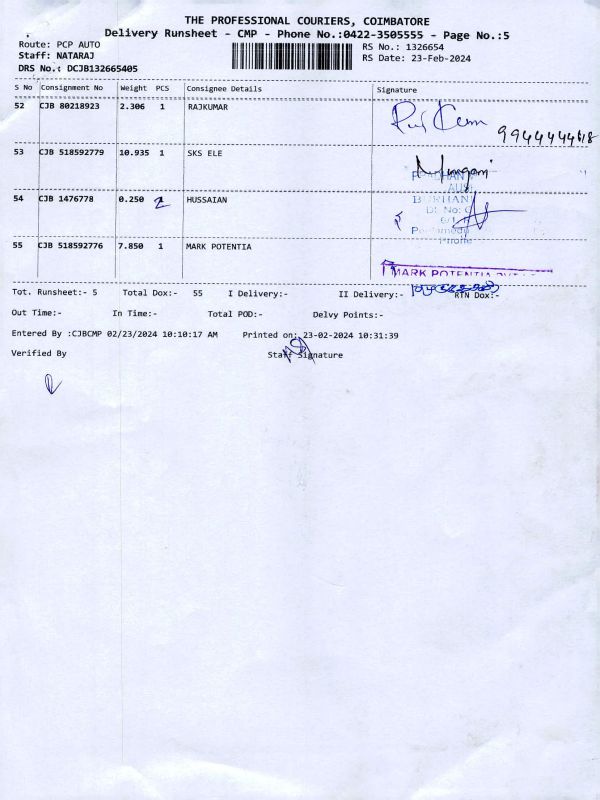 THE PROFESSIONAL COURIERS, COIMBATORE
Delivery Runsheet - CMP - Phone No.:0422-3505555 - Page No.:5
Route: PCP AUTO RS No.: 1326654
Staff: NATARAJ RS Date: 23-Feb-2024
DRS No.: DCJB132665405
S No Consignment No Weight PCS Consignee Details Signature
52 CJB 80218923 2.306 1 RAJKUMAR
9944444618
53 CJB 518592779 10.935 1 SKS ELE
54 CJB 1476778 0.250 2 HUSSAIAN
BURHANI
Phone
55 CJB 518592776 7.850 1 MARK POTENTIA
MARK POTENTIA
Tot. Runsheet:- 5 Total Dox:- 55 I Delivery:- II Delivery:- RTN Dox:-
Out Time:- In Time:- Total POD:- Delvy Points:-
Entered By :CJBCMP 02/23/2024 10:10:17 AM Printed on: 23-02-2024 10:31:39
Verified By Staff Signature